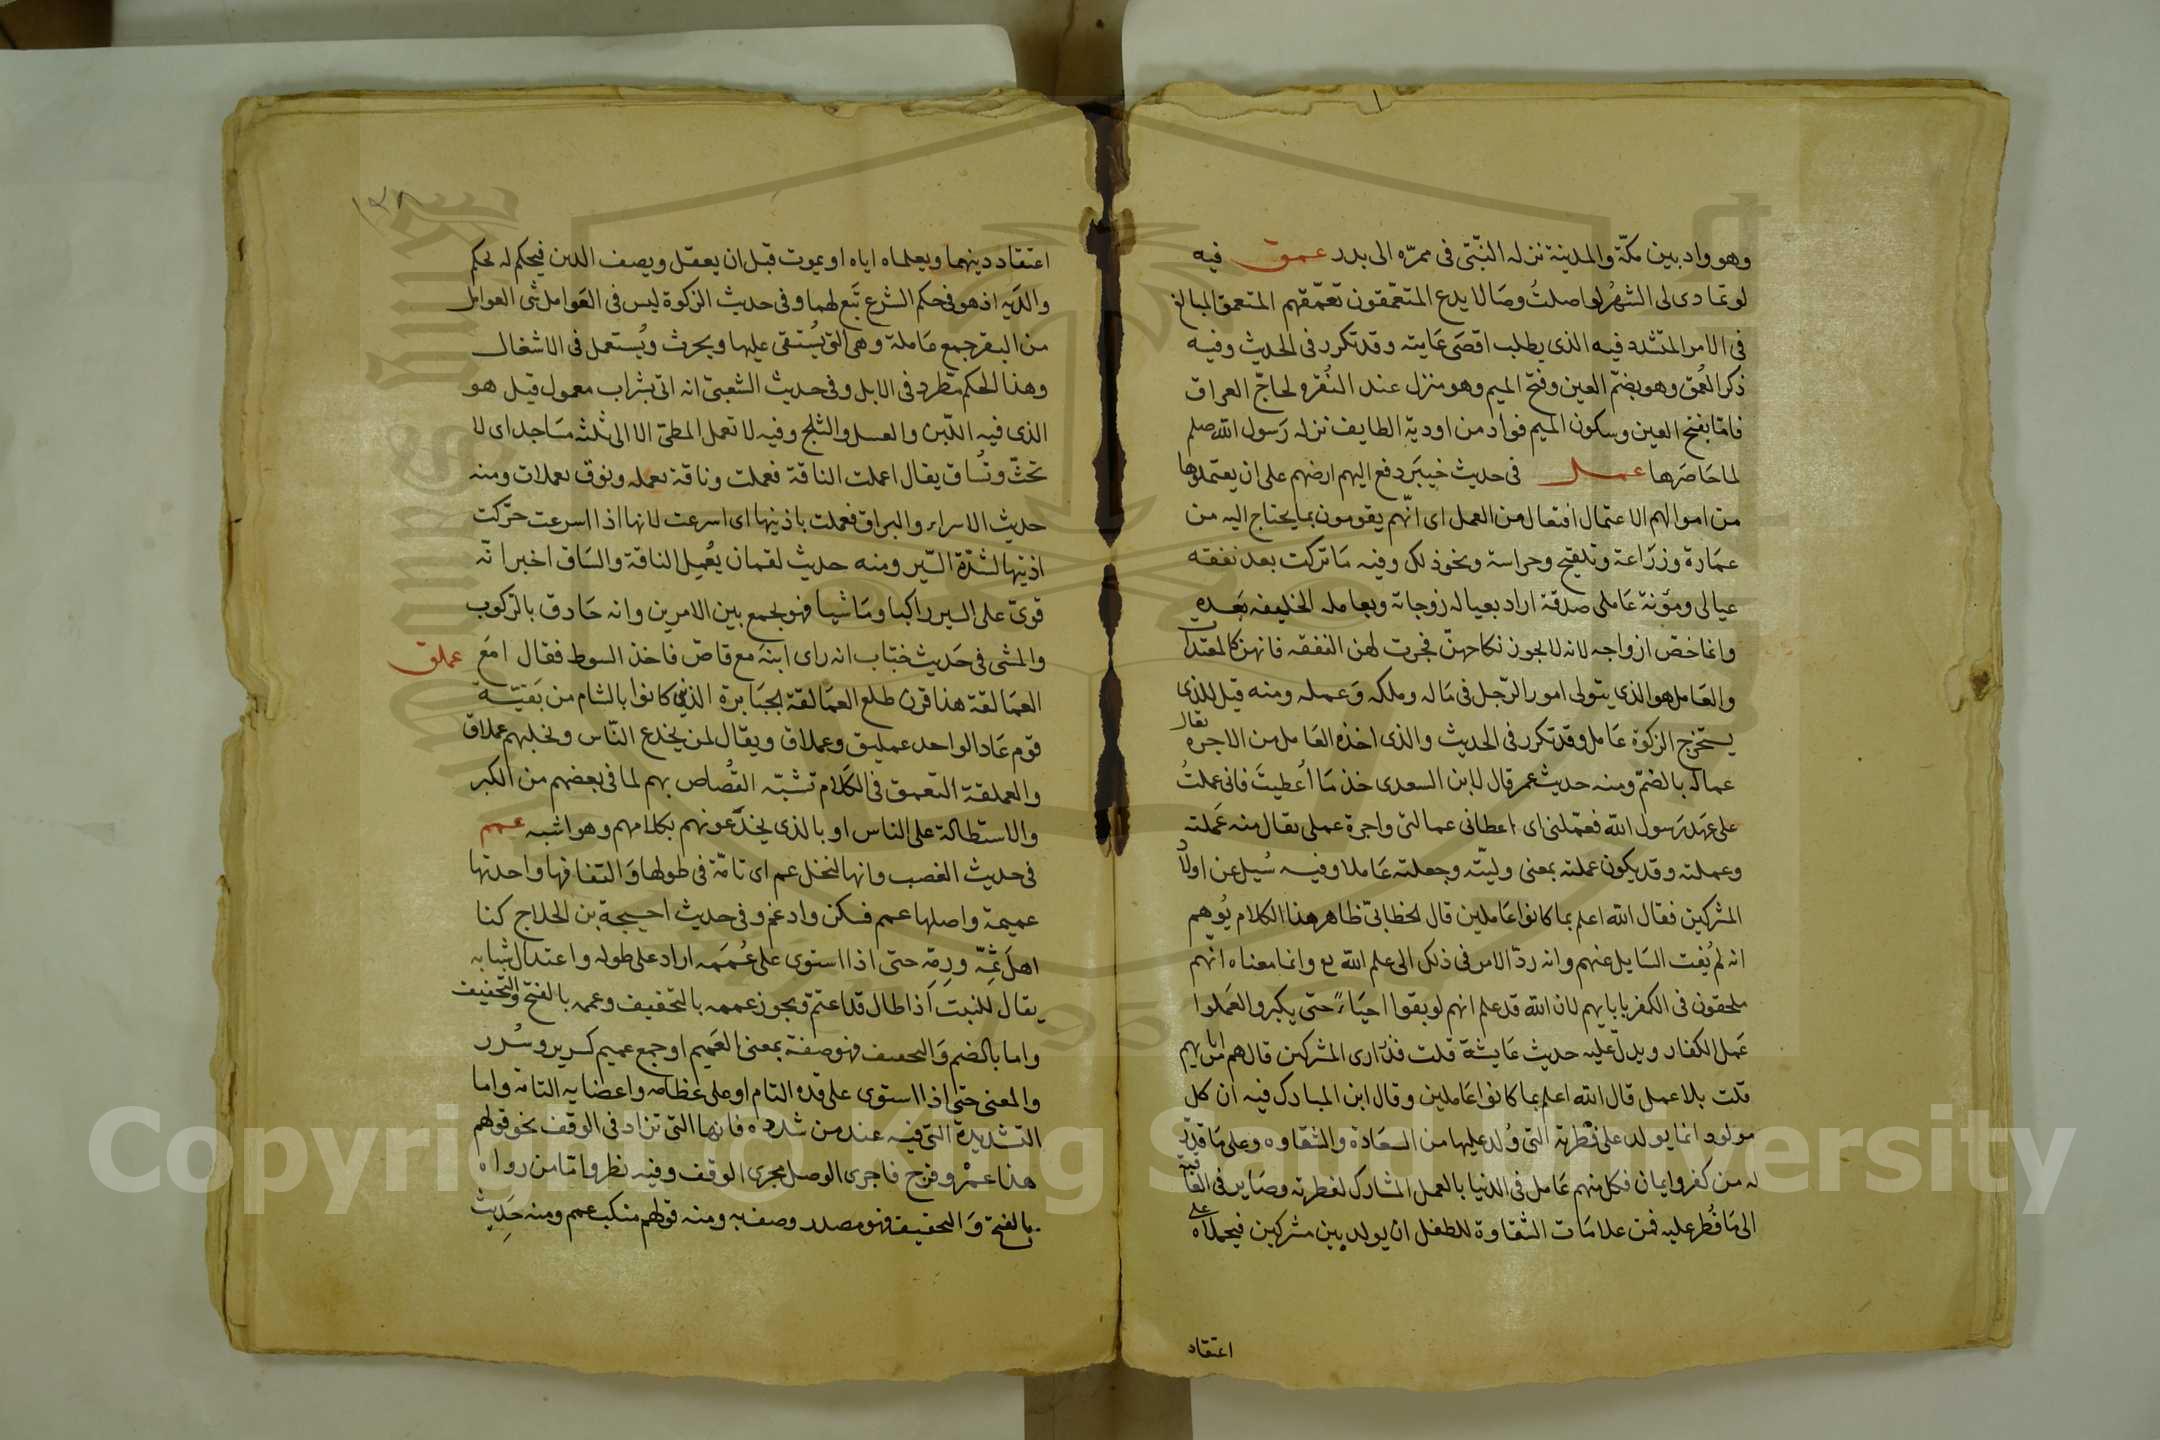 وهو واد بين مكّة والمدينة نزله النّبّى فى ممرّه الى بدر عمق فيه
لو تمادى لى الشهرُ لواصلتُ وصالا يدع المتعمّقون تعمّقهم المتعمق المبالغ
فى الامر المتشدد فيه الذى يطلب اقصى غايته وقد تكرر فى الحديث وفيه
ذكر العُمَق وهو بضمّ العين وفتح الميم وهو منزل عند النُقره لحاجّ العراق
فامّا بفتح العين وسكون الميم فواد من اودية الطايف نزله رَسول الله صلم
لما حَاصَرها عمل فى حديث خيبَر دفع اليهم ارضهم على ان يعتملوها
من اموالهم الاعتمال افتعال من العمل اى انّهم يقومون بما يحتاج اليه من
عمَارة وزرَاعة وتلقيح وحراسة ونحو ذلك وفيه مَا تركت بعد نفقه
عيالى ومؤنة عَاملى صدقة اراد بعياله زوجاته وبعامله الخليفه بَعده
وانما خصّ ازواجه لانه لا يجوز نكاحهنّ فجرت لهن النفقه فانهن كالمعتدات
والعَامل هو الذى يتولى امور الرّجل فى مَاله وملكه وَعمله ومنه قيل للذى
يستخرج الزكوة عَامل وقد تكرر فى الحديث والذى اخذه العَامل من الاجرة يقال
عماله بالضمّ ومنه حديث عمر قال لابن السعدى خذ مَا اُعطيتَ فانى عملتُ
على عَهد رَسول الله فعمّلنى اى اعطانى عمالتى واجرة عملى يقال منه عَملته
وعملته وقد يكون عملته بمعنى وليّته وجعلته عَاملا وفيه سُيل عن اولاد
المشركين فقال الله اعلم بما كانوا عَاملين قال الخطابىّ ظاهر هذا الكلام يُوهم
انه لم يُفت السَايل عنهم وانه ردّ الامر فى ذلك الى علم الله تع وانما معناه انّهم
ملحقون فى الكفر بابايهم لان الله قد علم انهم لو بقوا احيَاءً حتى يكبروا لعَملوا
عَمل الكفار ويدلّ عليه حديث عَايشة قلت فذرارى المشركين قال هم من ابايهم
قلت بلا عمل قال الله اعلم بما كانوا عَاملين وقال ابن المبارك فيه ان كل
مولود انما يولد على فطرته التى وُلد عليها من السعَادة والشقاوه وعلى مَا قدّر
له من كفر وايمان فكل منهم عَامل فى الدنيا بالعمل المشاكل لفطرته وصَاير فى العَاقبة
الى مَا فُطر عليه فمن علامَات الشقاوة للطفل ان يولد بين مشركين فيحملاه على
اعتقاد
١٣٨
اعتقاد دينهما ويعلماه اياه او يموت قبل ان يعقل ويصف الدين فيحكم له بحكم
والدَيه اذ هو فى حكم الشرع تبَع لهما وفى حديث الزكوة ليس فى العَوامل شى العوامل
من البقر جمع عَاملة وهى التى يُستقى عليها ويحرث ويُستعمل فى الاشغال
وهذا الحكم مطّرد فى الابل وفى حديث الشعبىّ انه اتى بشراب معمول قيل هو
الذى فيه اللّبن والعسل والثلج وفيه لا تعمل المطىّ الا الى ثلثه مسَاجد اى لا
تحثّ وتُساق يقال اعملت الناقة فعملت وناقة يعمله ونوق يعملات ومنه
حديث الاسراء والبراق فعملت باذنيها اى اسرعت لانها اذا اسرعت حرّكت
اذنيها لشدّة السّير ومنه حديث لقمان يعُمِل الناقة والسَاق اخبر انّه
قوىّ على السير راكبا ومَاشيا فهو يجمع بين الامرين وانه حَاذق بالرّكوب
والمشى فى حَديث خبّاب انه راى ابنه مع قاصّ فاخذ السوط فقال امَعَ عملق
العمَالقة هذا قرن طلع العمَالقة الجبَابرة الذين كانوا بالشام من بَقيّة
قوم عَاد الواحد عمليق وعملاق ويقال لمن يخدع النّاس ويخلبهم عملاق
والعملقة التعمق فى الكَلام تشبّه القُصاص بهم لما فى بعضهم من الكبر
والاستطالة على الناس او بالذى يخدَعونهم بكلامهم وهو اشبه عمم
فى حديث الغصب وانها لنخل عم اى تامّة فى طولها وَالتفافها واحدتها
عميمة واصلها عمم فسكن وادغم وفى حديث احيحة بن الجلاح كنا
اهلَ ثُمّه ورِمّه حتى اذا استوى على عُمَمه اراد على طوله واعتدال شبابه
يقال للنبتِ اَذا طال قد اعتمّ ويجوز عممه بالتخفيف وعممه بالفتح والتخفيف
واما بالضم وَالتخفيف فهو صفة بمعنى العَميم او جمع عميم كسرير وسُرر
والمعنى حتى اذا استوى على قده التام او على عظامه واعضايه التامّة واما
التشديدة التى فيه عند من شدده فانها التى تزاد فى الوقف نحو قولهم
هذا عمرّ وفرج فاجرى الوصل مجرى الوقف وفيه نظر وامّا من رواه
بالفتح وَالتخفيف فهو مصدر وصف به ومنه قولهم منكب عمم ومنه حَدِيث
Copyright © King Saud University